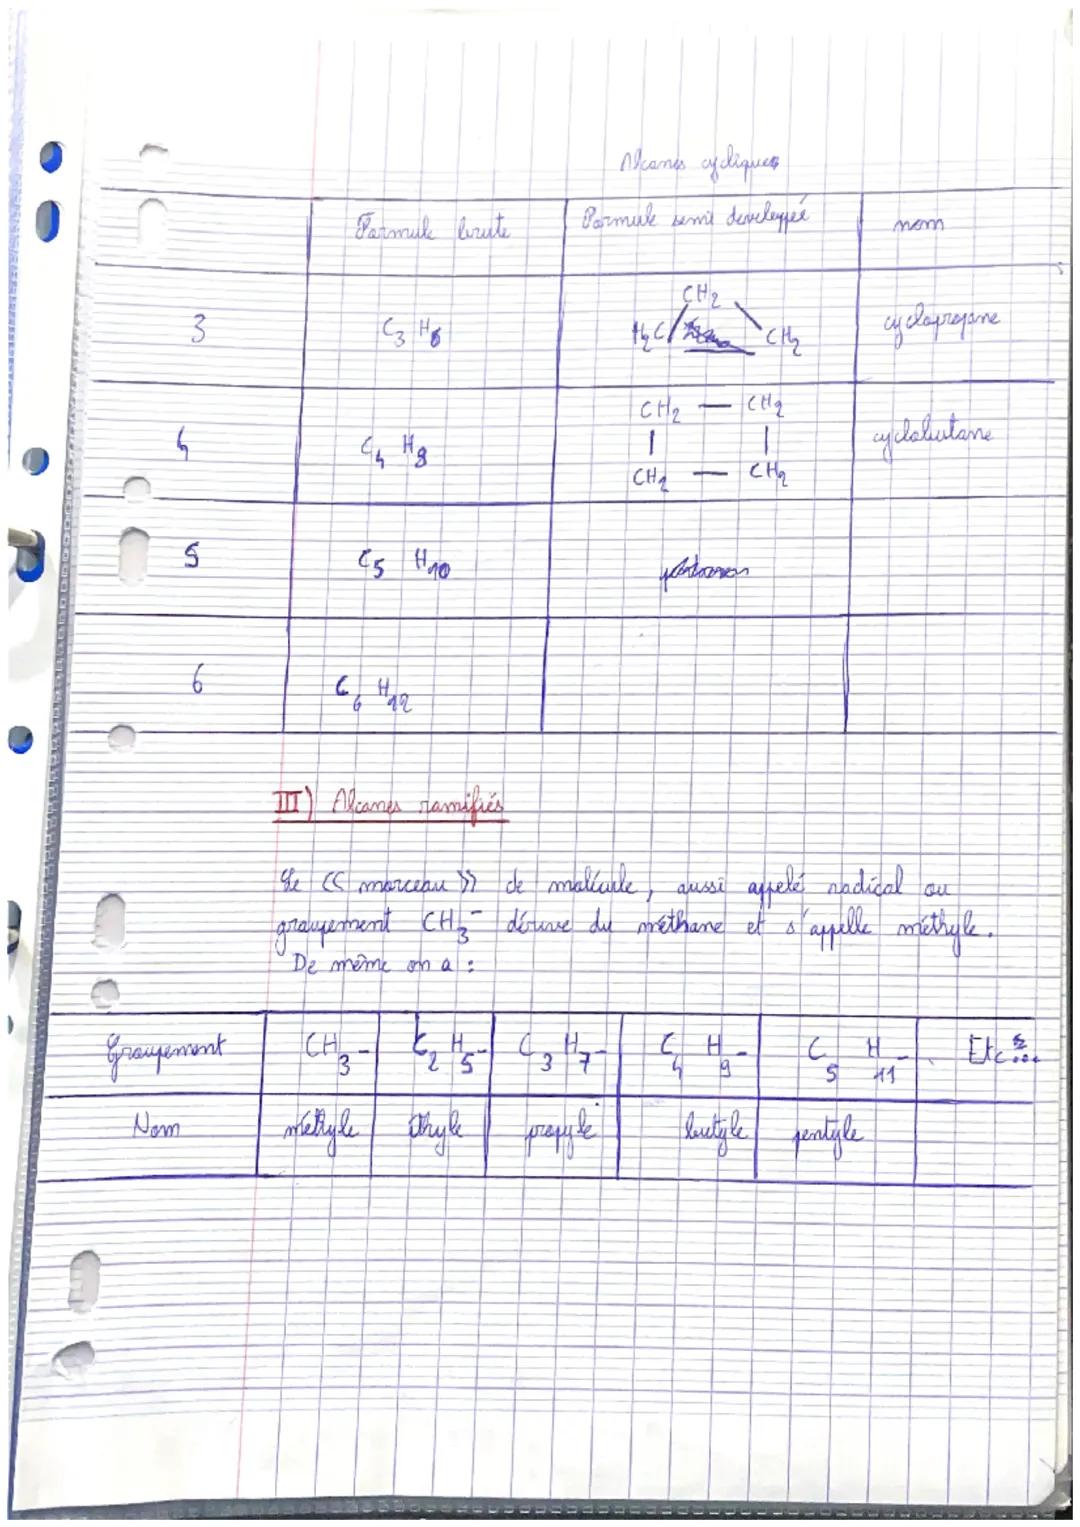 Alcanes cycliques
Formule brute | Formule semi developpé | nom
3 | C3 H6 | CH2 H2C CH2 | cyclopropane
4 | C4 H8 | CH2 — CH2 | cyclobutane
| |
CH2 — CH2
5 | C5 H10
6 | C6 H12
III) Alcanes ramifiés
Le << morceau >> de molécule, aussi appelé radical ou
groupement CH3- dérive du méthane et s'appelle méthyle.
De même on a :
Groupement | CH3- | C2 H5- | C3 H7- | C4 H9- | C5 H11- | Etc...
Nom | méthyle | éthyle | propyle | butyle | pentyle